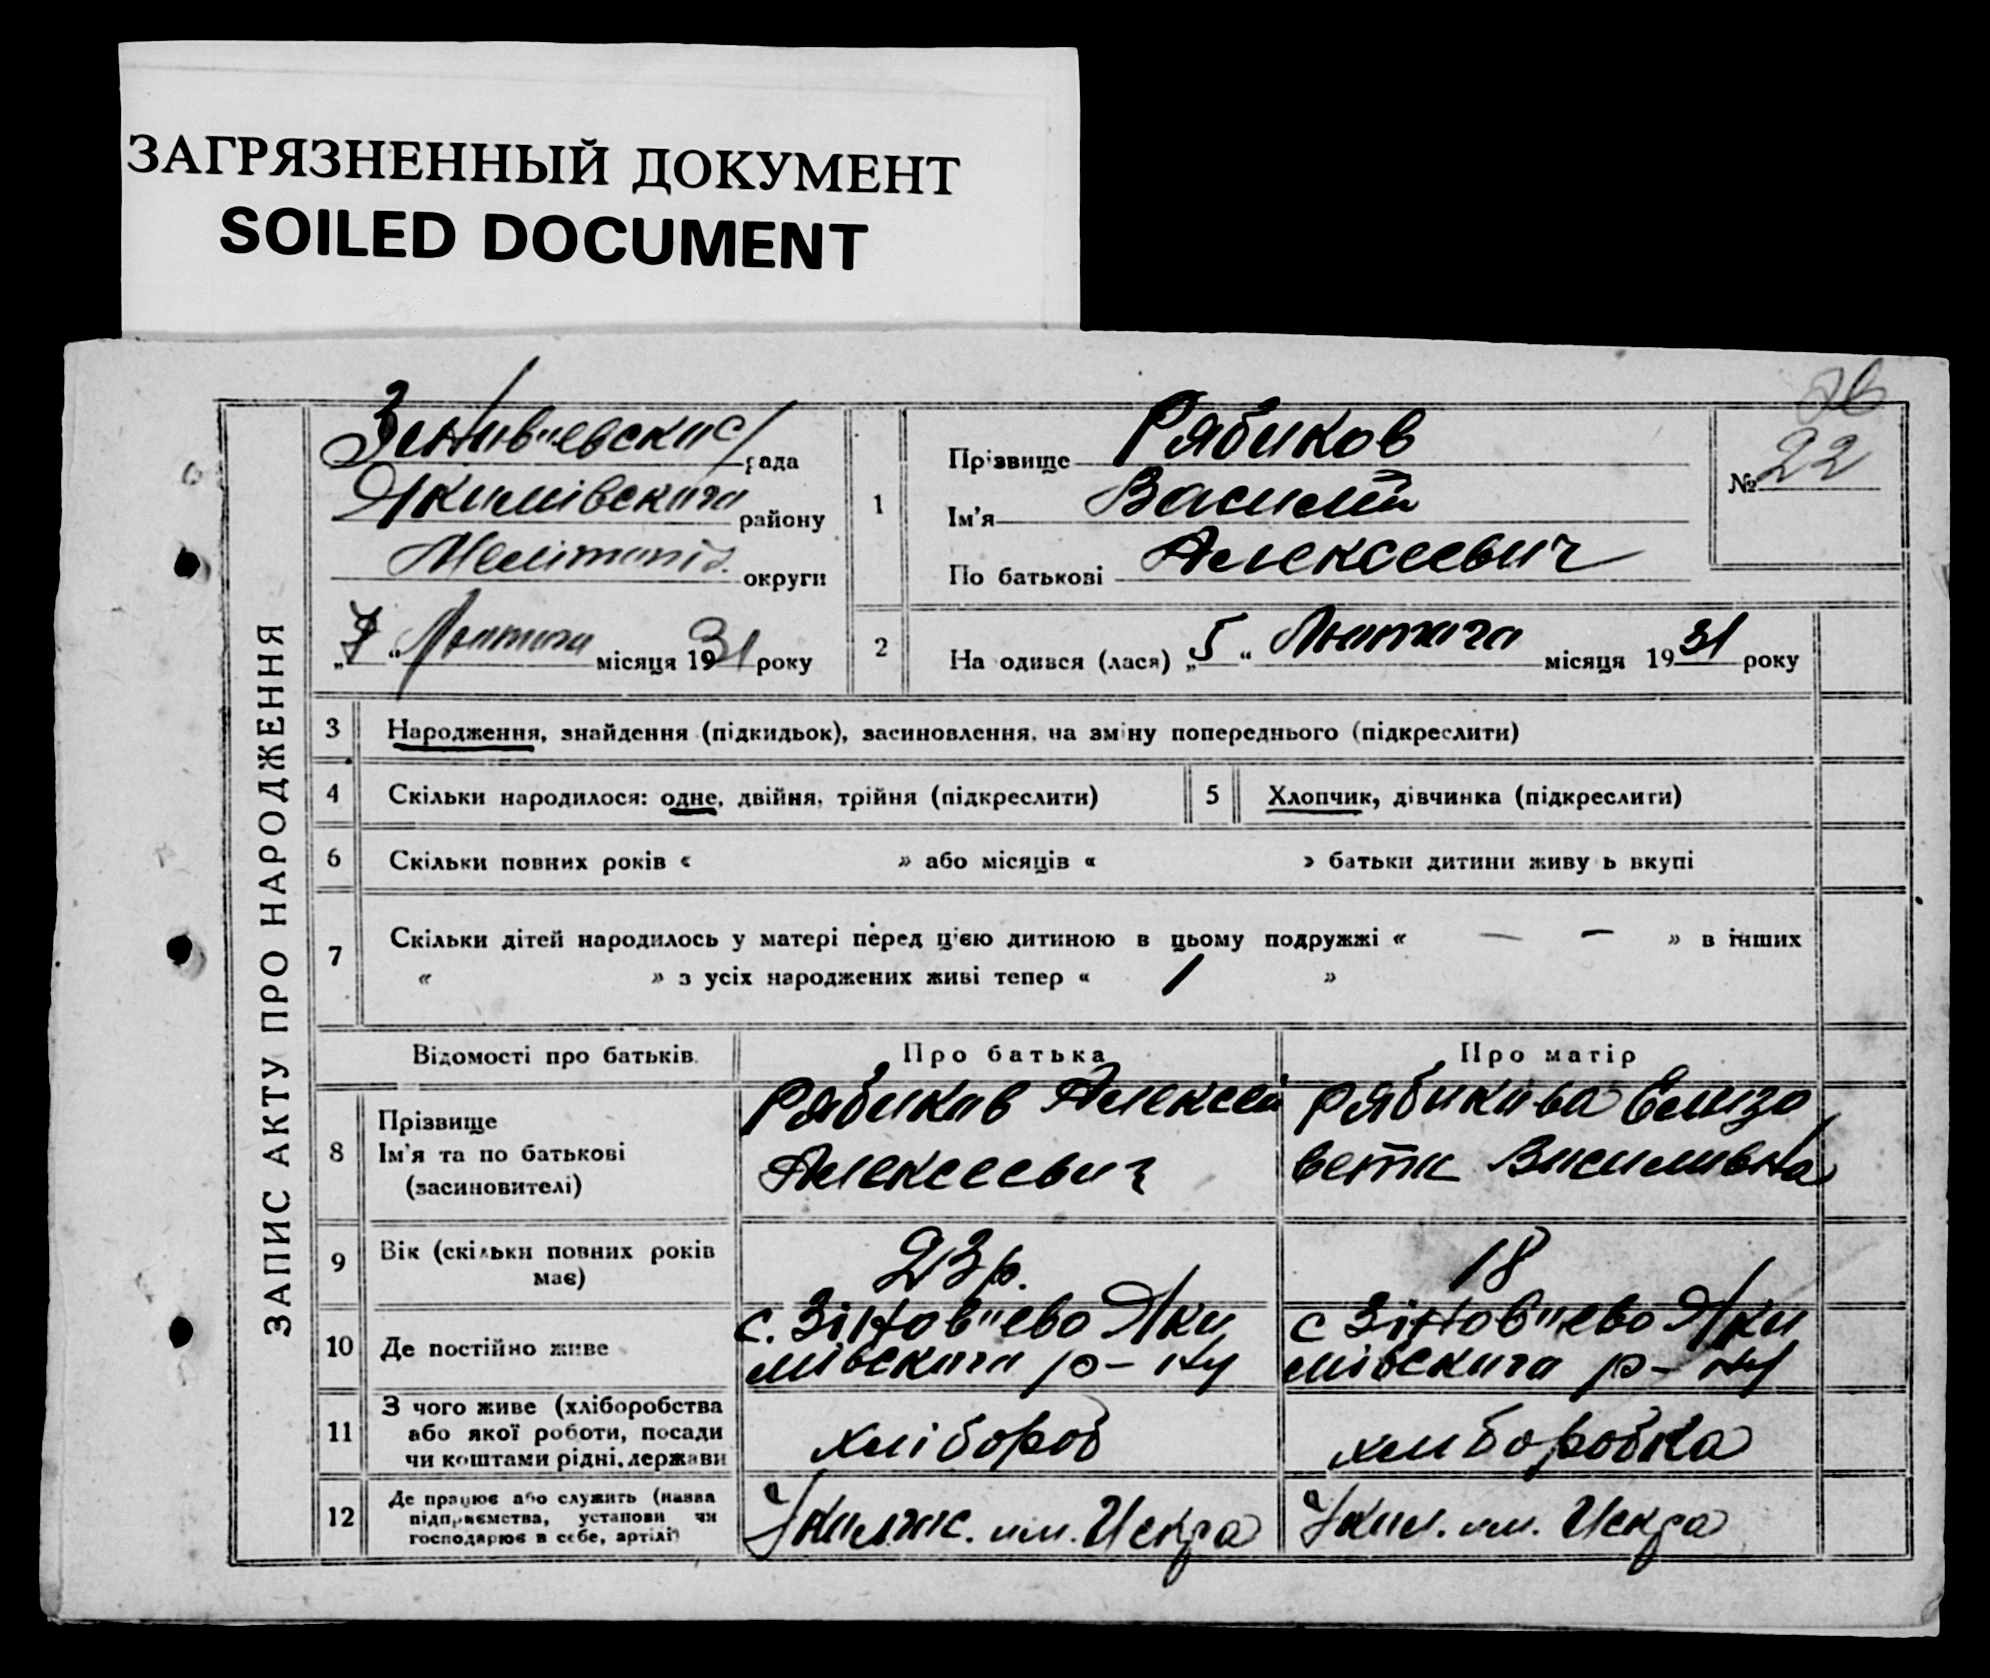 ЗАГРЯЗНЕННЫЙ ДОКУМЕНТ
SOILED DOCUMENT
26
ЗАПИС АКТУ ПРО НАРОДЖЕННЯ
рада
району
Мелітопіл. округи
„7“ Лютого місяця 1931 року
1
Прізвище Рябиков
Ім'я Василій
По батькові Алексеевич
№ 22
2 На одився (лася) „5“ Лютого місяця 1931 року
3 Народження, знайдення (підкидьок), засиновлення, на зміну попереднього (підкреслити)
4 Скільки народилося: одне, двійня, трійня (підкреслити)
5 Хлопчик, дівчинка (підкреслити)
6 Скільки повних років « » або місяців « » батьки дитини живу ь вкупі
7 Скільки дітей народилось у матері перед цією дитиною в цьому подружжі « — — » в інших
« » з усіх народжених живі тепер « 1 »
Відомості про батьків. Про батька Про матір
8 Прізвище
Ім'я та по батькові
(засиновителі)
Рябиков Алексей
Алексеевич
Рябикова Елиза
вета Василивна
9 Вік (скільки повних років
має)
23 р.
18
10 Де постійно живе
с. Зіновʼʼево Яки
мівского р-ну
с Зіновʼʼево Яки
мівского р-ну
11 З чого живе (хліборобства
або якої роботи, посади
чи коштами рідні, держави
хлібороб
хлиборобка
12 Де працює або служить (назва
підприємства, установи чи
господарює в себе, артілі)
им. Искра
им. Искра